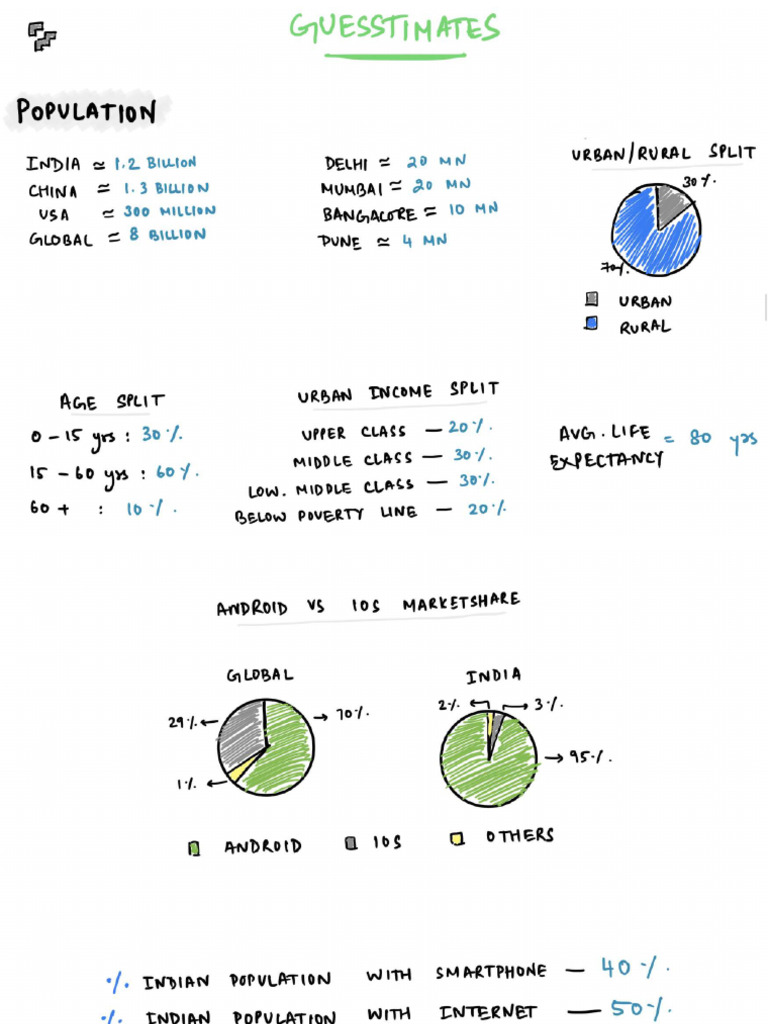 GUESSTIMATES
POPULATION
INDIA ≃ 1.2 BILLION
CHINA ≃ 1.3 BILLION
USA ≃ 300 MILLION
GLOBAL ≃ 8 BILLION
DELHI ≃ 20 MN
MUMBAI ≃ 20 MN
BANGALORE ≃ 10 MN
PUNE ≃ 4 MN
URBAN/RURAL SPLIT
30%.
70%.
URBAN
RURAL
AGE SPLIT
0-15 yrs : 30%.
15-60 yrs : 60%.
60+ : 10%.
URBAN INCOME SPLIT
UPPER CLASS — 20%.
MIDDLE CLASS — 30%.
LOW. MIDDLE CLASS — 30%.
BELOW POVERTY LINE — 20%.
AVG. LIFE
EXPECTANCY = 80 yrs
ANDROID VS IOS MARKETSHARE
GLOBAL
29% ←
→ 70%.
1% ←
INDIA
2% ←
→ 3%.
→ 95%.
ANDROID
IOS
OTHERS
% INDIAN POPULATION WITH SMARTPHONE — 40%.
% INDIAN POPULATION WITH INTERNET — 50%.